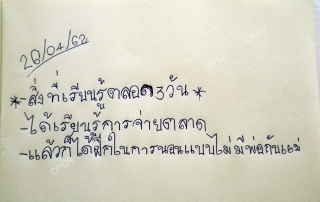 20/04/62
*-สิ่งที่เรียนรู้ตลอด 3 วัน *
-ได้เรียนรู้การจ่ายตลาด
-แล้วก็ได้ฝึกในการนอนแบบไม่มีพ่อกับแม่